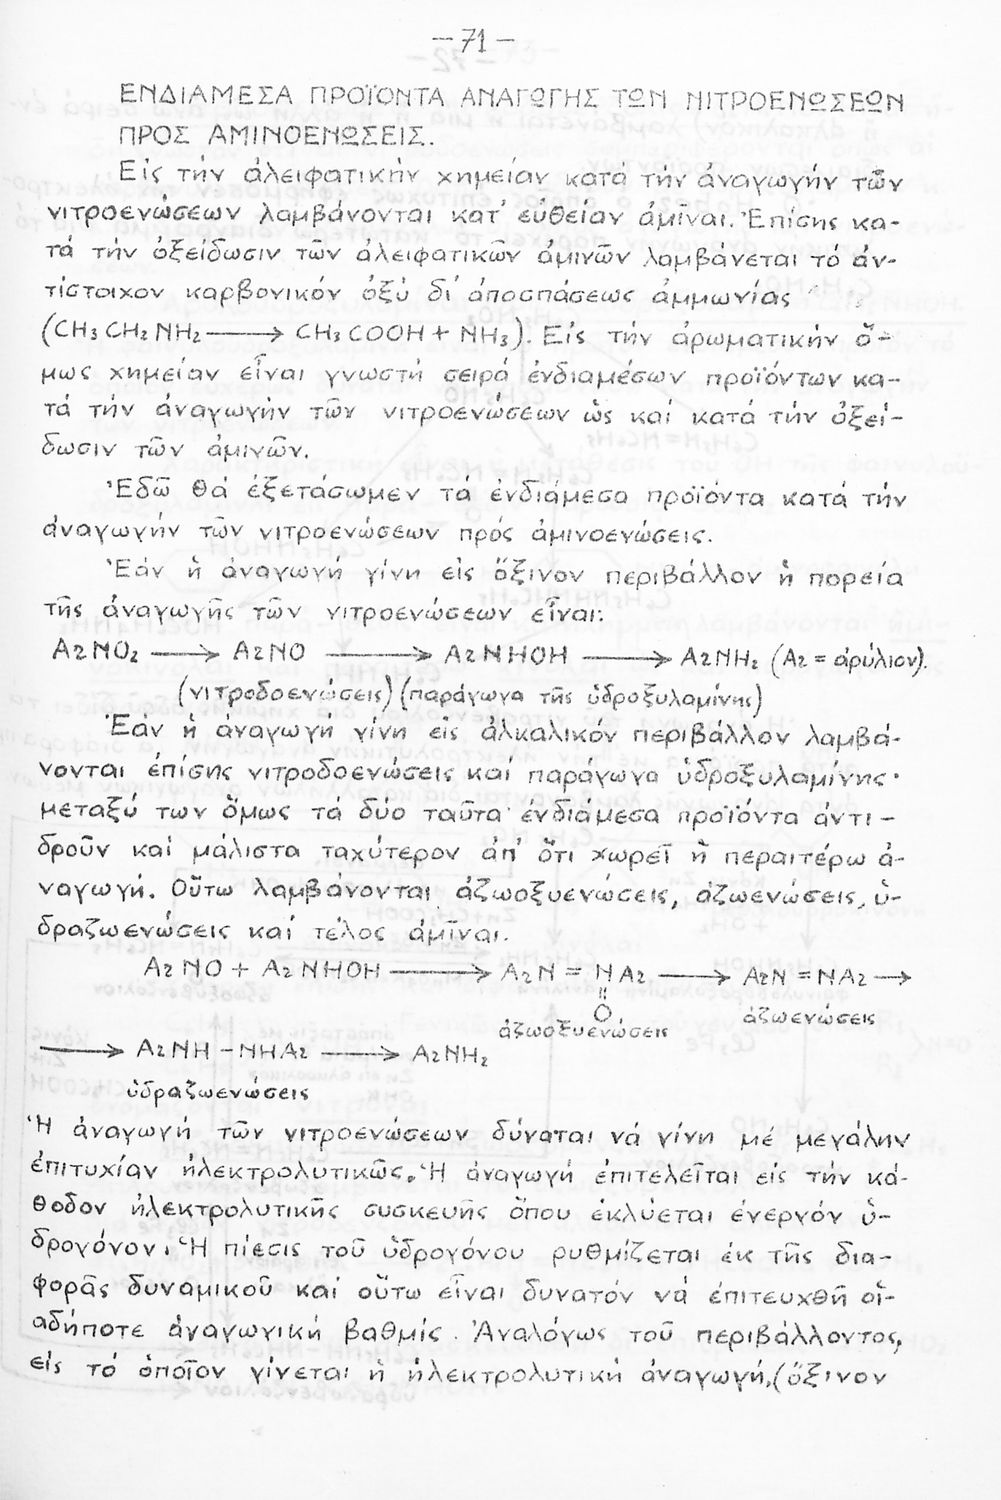 — 71 —
ΕΝΔΙΑΜΕΣΑ ΠΡΟΪΟΝΤΑ ΑΝΑΓΩΓΗΣ ΤΩΝ ΝΙΤΡΟΕΝΩΣΕΩΝ
ΠΡΟΣ ΑΜΙΝΟΕΝΩΣΕΙΣ.
Εἰς τήν ἀλειφατικήν χημείαν κατά τήν ἀναγωγήν τῶν
νιτροενώσεων λαμβάνονται κατ' εὐθείαν ἀμῖναι. Ἐπίσης κα-
τά τήν ὀξείδωσιν τῶν ἀλειφατικῶν ἀμινῶν λαμβάνεται τό ἀν-
τίστοιχον καρβονικόν ὀξύ δι' ἀποσπάσεως ἀμμωνίας
(CH₃CH₂NH₂ ⟶ CH₃COOH + NH₃). Εἰς τήν ἀρωματικήν ὅ-
μως χημείαν εἶναι γνωστή σειρά ἐνδιαμέσων προϊόντων κα-
τά τήν ἀναγωγήν τῶν νιτροενώσεων ὡς καί κατά τήν ὀξεί-
δωσιν τῶν ἀμινῶν.
Ἐδῶ θά ἐξετάσωμεν τά ἐνδιάμεσα προϊόντα κατά τήν
ἀναγωγήν τῶν νιτροενώσεων πρός ἀμινοενώσεις.
Ἐάν ἡ ἀναγωγή γίνῃ εἰς ὄξινον περιβάλλον ἡ πορεία
τῆς ἀναγωγῆς τῶν νιτροενώσεων εἶναι:
ArNO₂ ⟶ ArNO ⟶ ArNHOH ⟶ ArNH₂ (Ar = ἀρύλιον).
(νιτροδοενώσεις) (παράγωγα τῆς ὑδροξυλαμίνης)
Ἐάν ἡ ἀναγωγή γίνῃ εἰς ἀλκαλικόν περιβάλλον λαμβά-
νονται ἐπίσης νιτροδοενώσεις καί παράγωγα ὑδροξυλαμίνης·
μεταξύ των ὅμως τά δύο ταῦτα ἐνδιάμεσα προϊόντα ἀντι-
δροῦν καί μάλιστα ταχύτερον ἀπ' ὅτι χωρεῖ ἡ περαιτέρω ἀ-
ναγωγή. Οὕτω λαμβάνονται ἀζωοξυενώσεις, ἀζωενώσεις, ὑ-
δραζωενώσεις καί τέλος ἀμῖναι.
ArNO + ArNHOH ⟶ ArN = NAr ⟶ ArN = NAr ⟶
॥
O
ἀζωοξυενώσεις ἀζωενώσεις
⟶ ArNH – NHAr ⟶ ArNH₂
ὑδραζωενώσεις
Ἡ ἀναγωγή τῶν νιτροενώσεων δύναται νά γίνῃ μέ μεγάλην
ἐπιτυχίαν ἠλεκτρολυτικῶς. Ἡ ἀναγωγή ἐπιτελεῖται εἰς τήν κά-
θοδον ἠλεκτρολυτικῆς συσκευῆς ὅπου ἐκλύεται ἐνεργόν ὑ-
δρογόνον. Ἡ πίεσις τοῦ ὑδρογόνου ρυθμίζεται ἐκ τῆς δια-
φορᾶς δυναμικοῦ καί οὕτω εἶναι δυνατόν νά ἐπιτευχθῇ οἱ-
αδήποτε ἀναγωγική βαθμίς. Ἀναλόγως τοῦ περιβάλλοντος,
εἰς τό ὁποῖον γίνεται ἡ ἠλεκτρολυτική ἀναγωγή, (ὄξινον